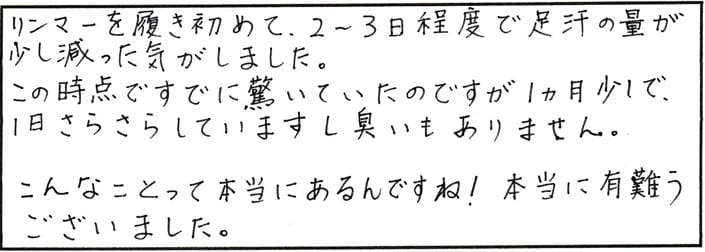 リンマーを履き初めて、2～3日程度で足汗の量が
少し減った気がしました。
この時点ですでに驚いていたのですが1ヵ月少しで、
1日さらさらしていますし臭いもありません。
こんなことって本当にあるんですね！本当に有難う
ございました。